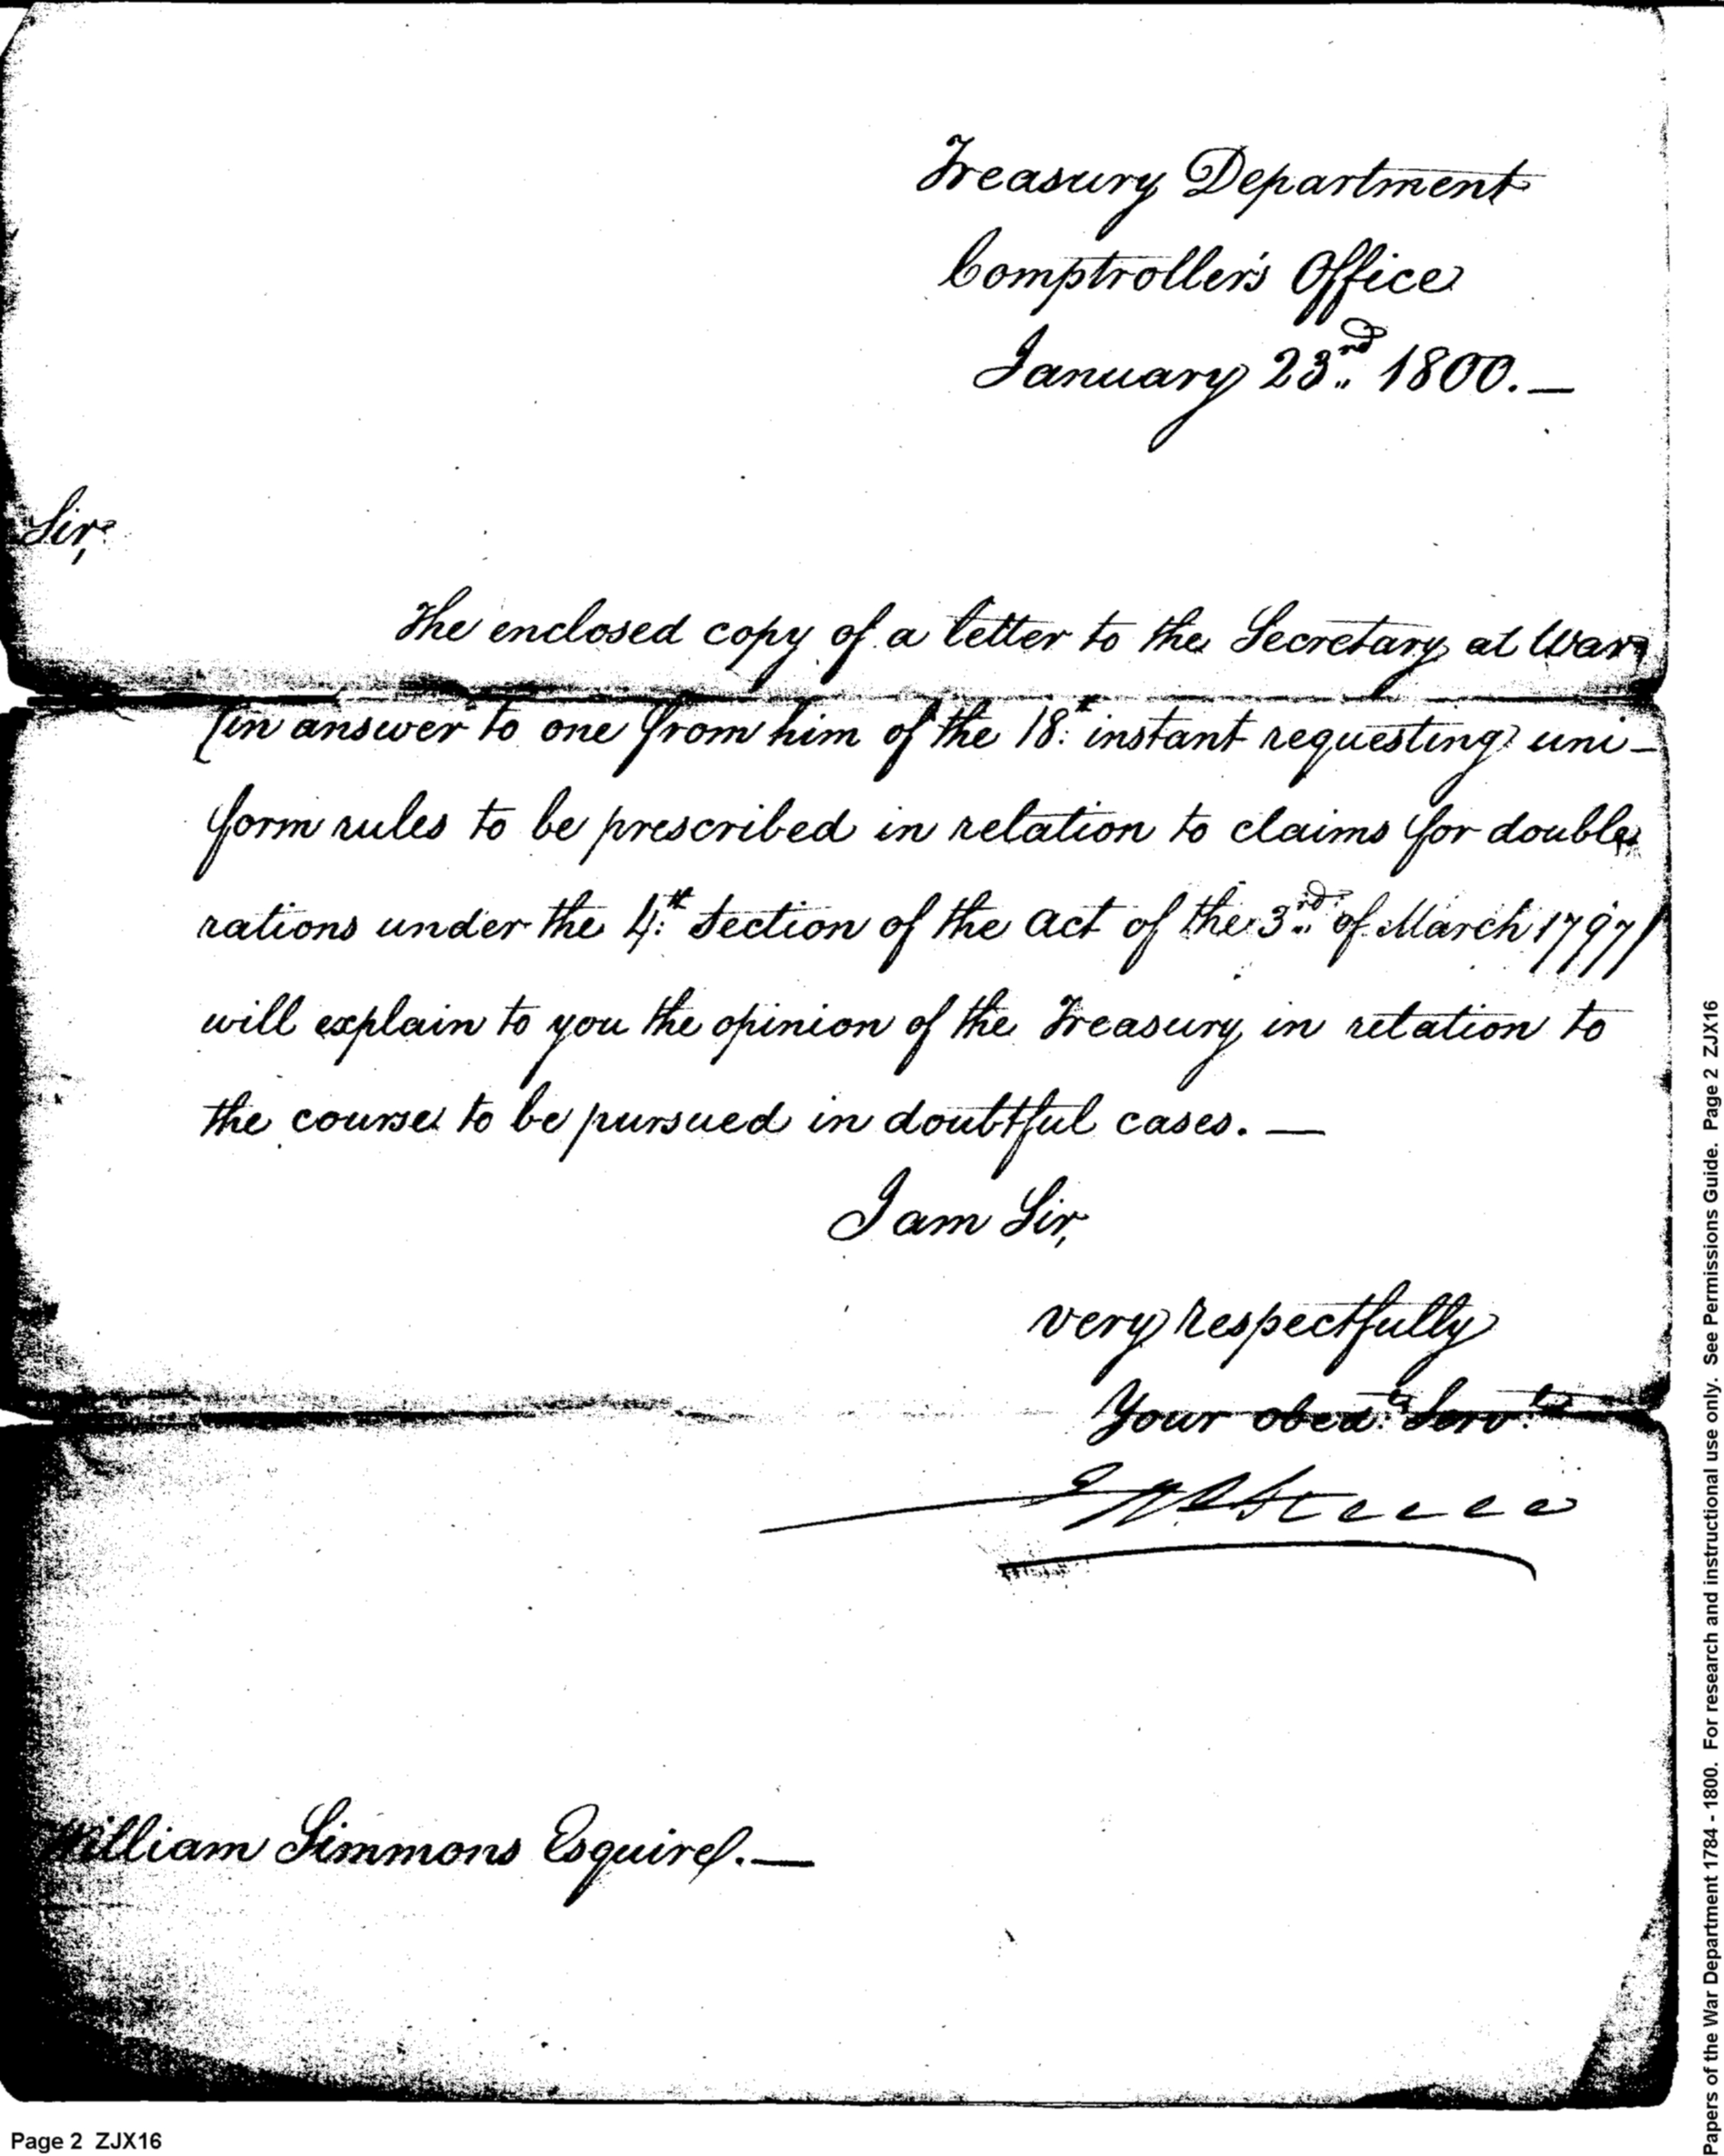 Treasury Department
Comptroller's Office
January 23rd 1800. —
Sir,
The enclosed copy of a letter to the Secretary at War
(in answer to one from him of the 18th instant requesting uni-
form rules to be prescribed in relation to claims for double
rations under the 4th Section of the act of the 3rd of March 1797)
will explain to you the opinion of the Treasury in relation to
the course to be pursued in doubtful cases. —
I am Sir,
very respectfully
Your obedt Servt
Jno Steele
William Simmons Esquire. —
Page 2 ZJX16
Papers of the War Department 1784 - 1800. For research and instructional use only. See Permissions Guide. Page 2 ZJX16